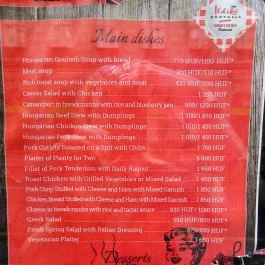 Main dishes
Hungarian Goulash Soup with bread 770 HUF/1100 HUF*
Meat soup HUF/510 HUF*
Rich meat soup with vegetables and meat 430 HUF/690 HUF*
Caesar Salad with Chicken HUF*
Camambert in breadcrumbs with rice and blueberry jam 900/1290 HUF*
Hungarian Beef Stew with Dumplings 1 300/1 850 HUF*
Hungarian Chicken Stew with Dumplings 1 010/1 450 HUF*
Hungarian Pork Stew with Dumplings 1 010/1 450 HUF*
Pork Cutlets Roasted on a Spit with Chips 1 750 HUF
Platter of Plenty for Two 5 800 HUF
Fillet of Pork Tenderloin with Daily Ragout 1 950 HUF
Roast Chicken with Grilled Vegetables or Mixed Salad 1 450 HUF
Pork Chop Stuffed with Cheese and Ham with Mixed Garnish 1 850 HUF
Chicken Breast Stuffed with Cheese and Ham with Mixed Garnish 1 850 HUF
Cheese in breadcrumbs with rice and tartar sauce 830 HUF/ 1190 HUF*
Greek Salad 590 HUF/850 HUF*
Fresh Spring Salad with Italian Dressing HUF*
Vegetarian Platter 1 650 HUF
Desserts